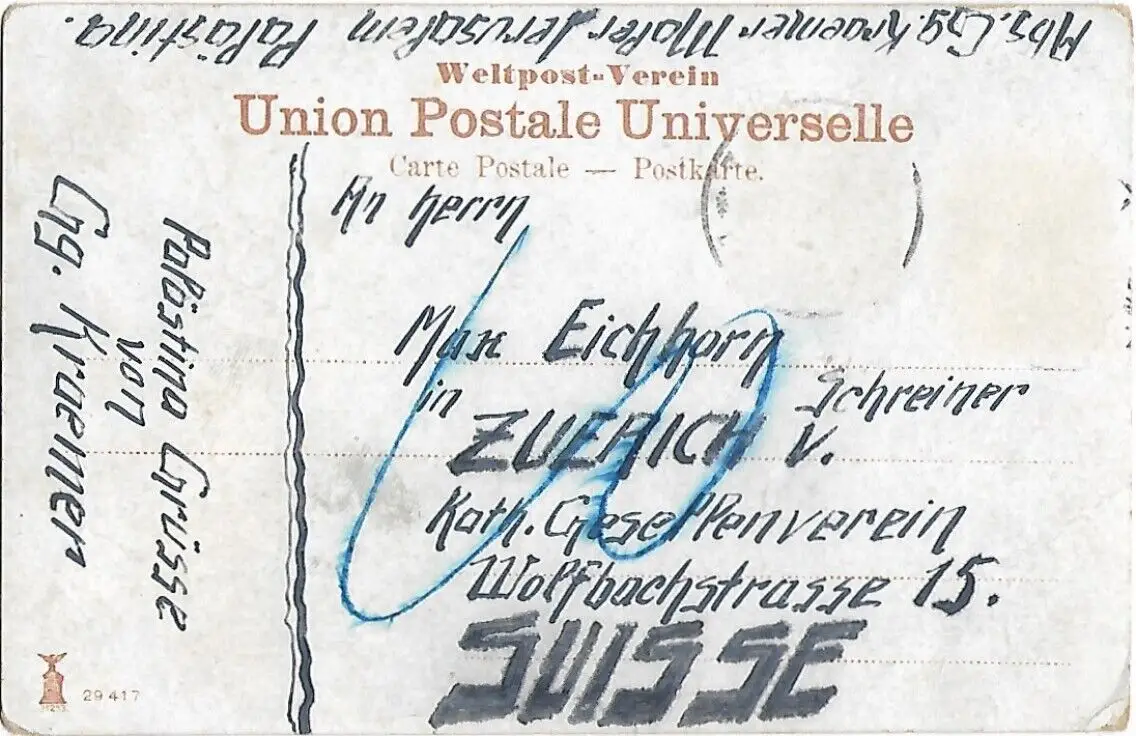 Abs. Gg. Kraemer Maler Jerusalem Palästina.
Weltpost-Verein
Union Postale Universelle
Carte Postale — Postkarte.
An Herrn
Max Eichhorn
Schreiner
in
ZUERICH V.
Kath. Gesellenverein
Wolfbachstrasse 15.
SUISSE
Palästina Grüsse
von
Gg. Kraemer
29 417